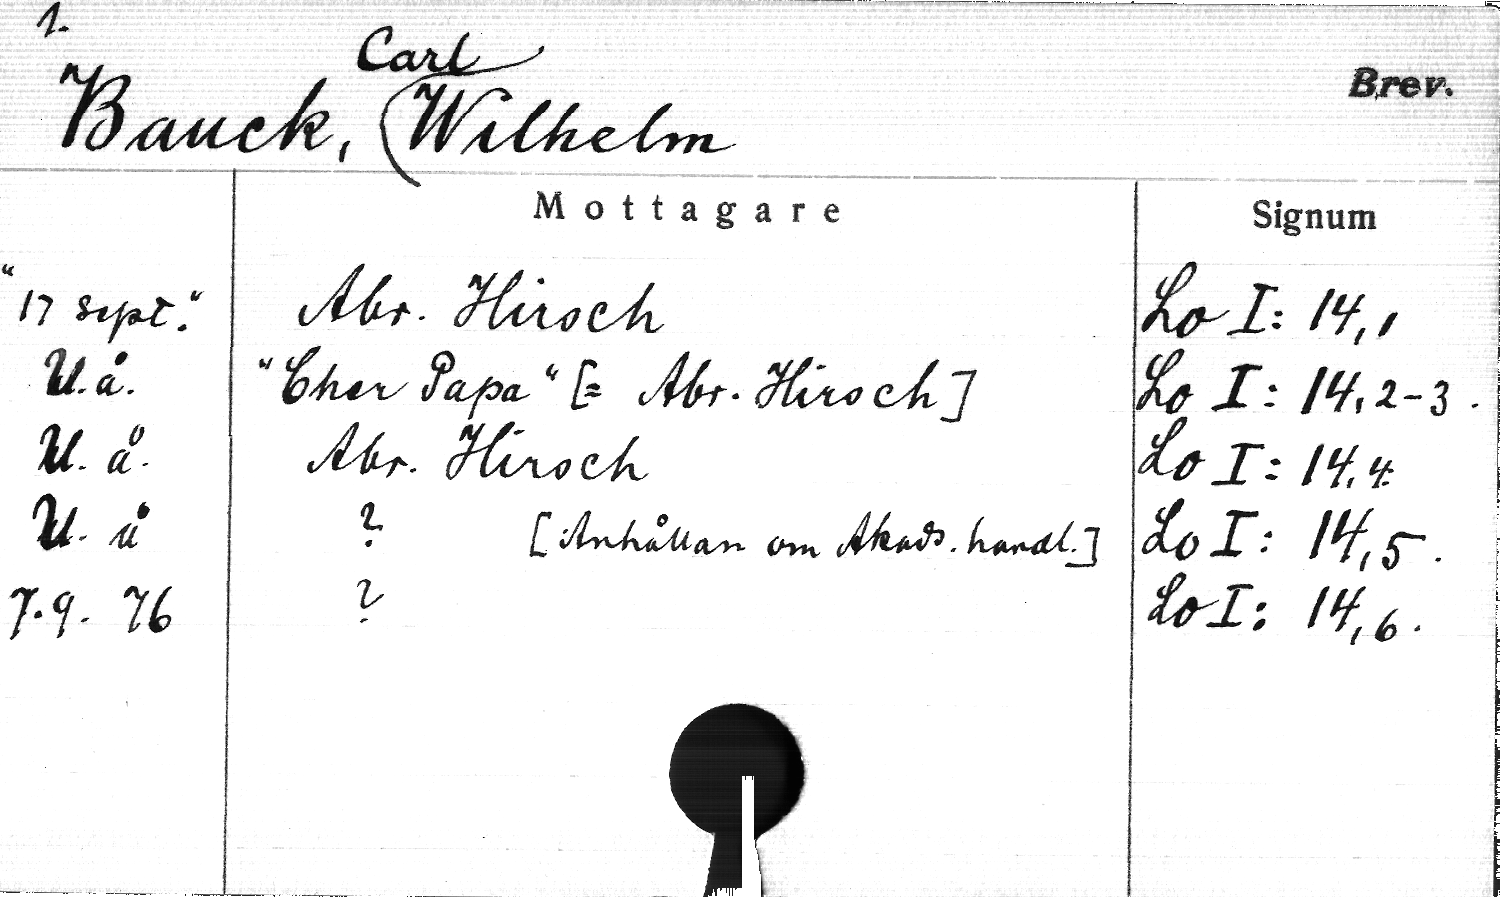 1.
Carl
Bauck, Wilhelm
Brev.
Mottagare Signum
"17 sept." Abr. Hirsch Lo I: 14,1
U. å. "Cher Papa" [= Abr. Hirsch] Lo I: 14,2-3.
U. å. Abr. Hirsch Lo I: 14,4.
U. å ? [Anhållan om Akads. handl.] Lo I: 14,5.
7.9. 76 ? Lo I: 14,6.